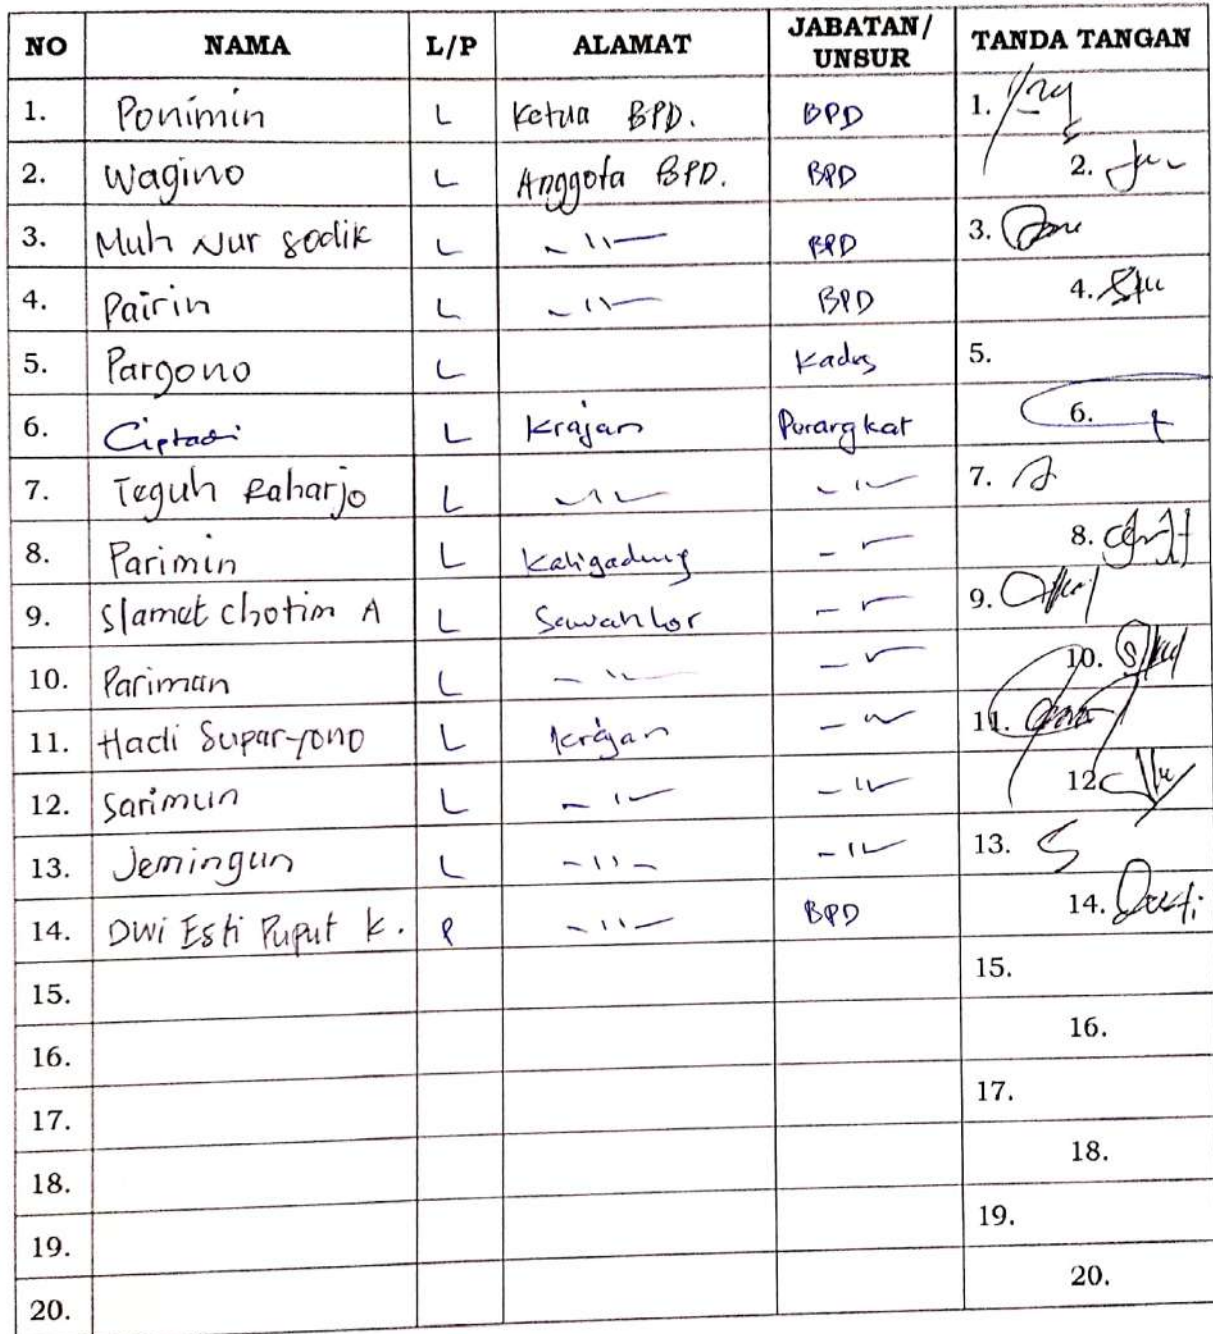 NO NAMA L/P ALAMAT JABATAN/ UNSUR TANDA TANGAN
1. Ponimin L Ketua BPD. BPD 1.
2. Wagino L Anggota BPD. BPD 2.
3. Muh Nur Sodik L - 11 - BPD 3.
4. Pairin L - 11 - BPD 4.
5. Pargono L Kadus 5.
6. Ciptadi L Krajan Perangkat 6.
7. Teguh Raharjo L - 11 - - 11 - 7.
8. Parimin L Kaligadung 8.
9. Slamet Chotim A L Sawah Lor 9.
10. Pariman L - 11 - 10.
11. Hadi Supar-yono L Krajan - 11 - 11.
12. Sarimun L - 11 - - 11 - 12.
13. Jemingun L - 11 - - 11 - 13.
14. Dwi Esti Puput K. P - 11 - BPD 14.
15. 15.
16. 16.
17. 17.
18. 18.
19. 19.
20. 20.